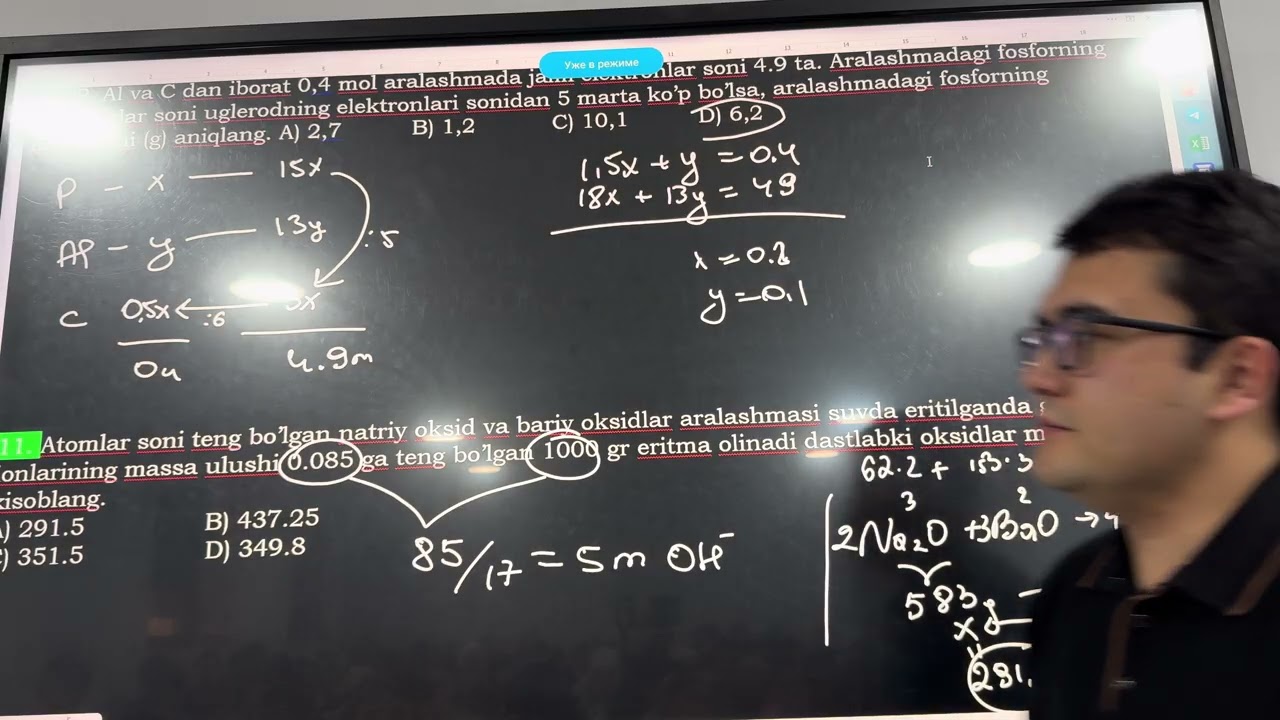 Уже в режиме
Al va C dan iborat 0,4 mol aralashmada elektronlar soni 4.9 ta. Aralashmadagi fosforning
lar soni uglerodning elektronlari sonidan 5 marta ko'p bo'lsa, aralashmadagi fosforning
(g) aniqlang. A) 2,7 B) 1,2 C) 10,1 D) 6,2
P - x — 15x
Al - y — 13y
:5
C 0,5x ← :6 3x
0.4 4.9m
1,5x + y = 0.4
18x + 13y = 4.9
x = 0.2
y = 0.1
11. Atomlar soni teng bo'lgan natriy oksid va bariy oksidlar aralashmasi suvda eritilganda g
ionlarining massa ulushi 0.085 ga teng bo'lgan 1000 gr eritma olinadi dastlabki oksidlar m
xisoblang.
A) 291.5 B) 437.25
C) 351.5 D) 349.8
85/17 = 5 m OH⁻
62.2 + 153.3
3 2
2Na₂O + 3BaO → 4
583g —
x g —
291.